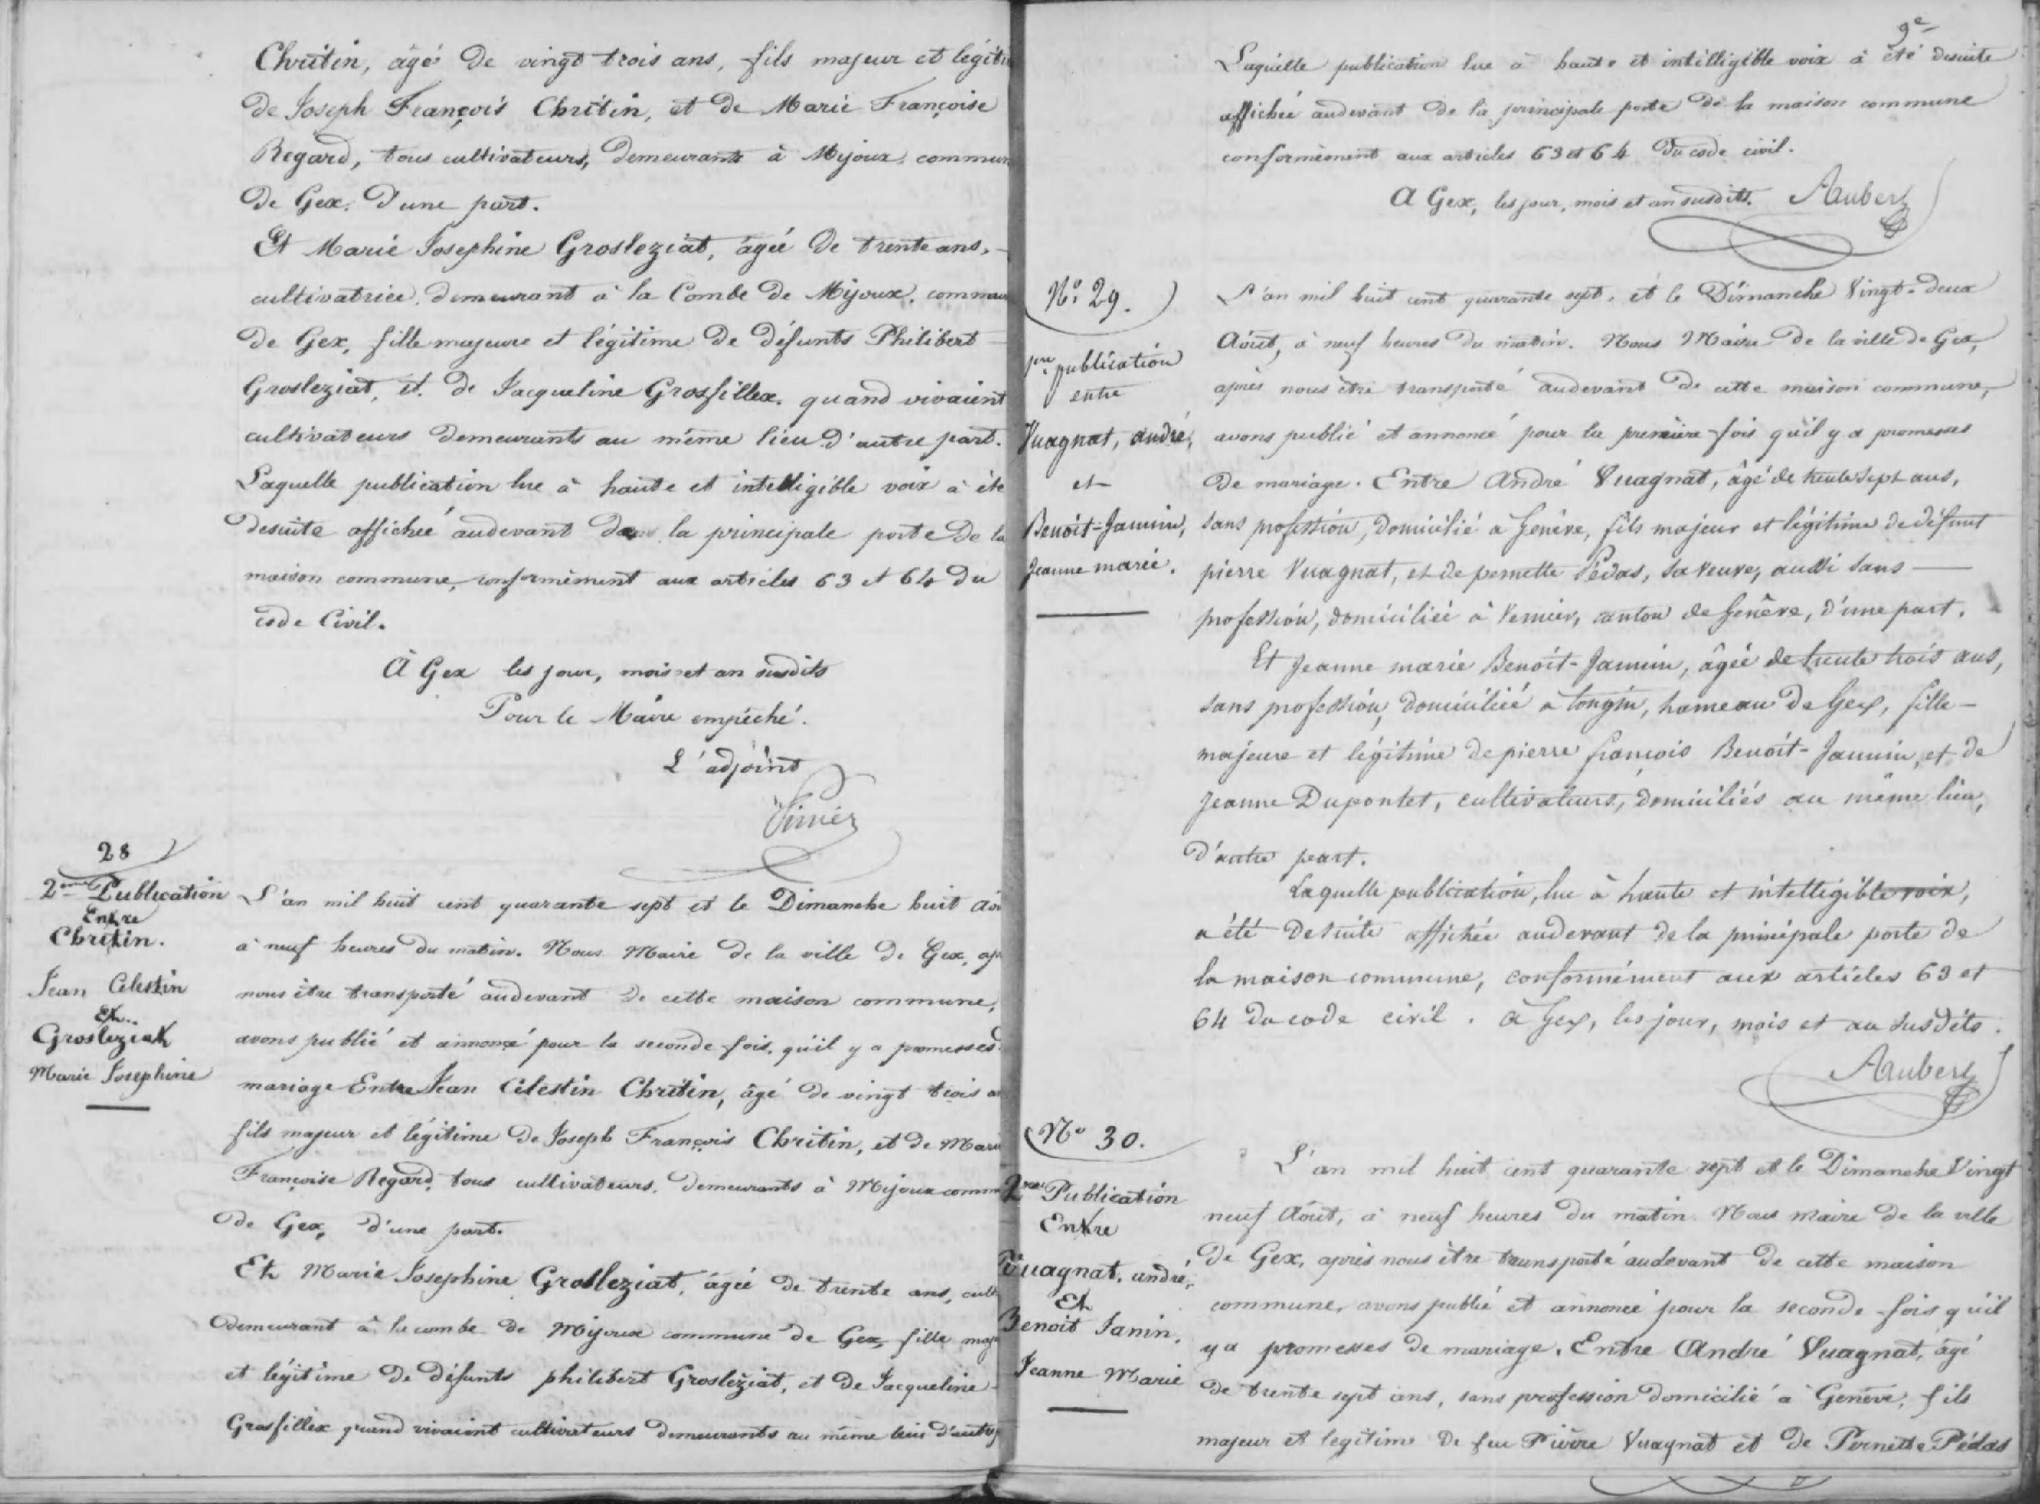 Chritin, âgé de vingt trois ans, fils majeur et légiti
de Joseph François Chritin, et de Marie Françoise
Regard, tous cultivateurs, demeurants à Mijoux, commun
de Gex, d'une part.
Et Marie Josephine Grosleziat, âgée de trente ans,
cultivatrice, demeurant à la Combe de Mijoux, commun
de Gex, fille majeure et légitime de défunts Philibert
Grosleziat, et de Jacqueline Grosfillex, quand vivaient
cultivateurs demeurants au même lieu d'autre part.
Laquelle publication lue à haute et intelligible voix à été
desuite affichée audevant de la principale porte de la
maison commune, conformément aux articles 63 et 64 du
code Civil.
A Gex les jour, mois et an susdits
Pour le Maire empêché.
L'adjoint
28
2eme Publication
Entre
Chritin.
Jean Celestin
Et
Grosleziat
Marie Josephine
L'an mil huit cent quarante sept et le Dimanche huit Aoû
à neuf heures du matin. Nous Maire de la ville de Gex, ap
nous être transporté audevant de cette maison commune,
avons publié et annoncé pour la seconde fois, qu'il y a promesses
mariage Entre Jean Célestin Chritin, âgé de vingt trois an
fils majeur et légitime de Joseph François Chritin, et de Mari
Françoise Regard, tous cultivateurs, demeurants à Mijoux comm
de Gex, d'une part.
Et Marie Josephine Grosleziat, âgée de trente ans, cult
demeurant à la combe de Mijoux commune de Gex, fille maje
et légitime de défunts philibert Grosleziat, et de Jacqueline
Grosfillex quand vivaient cultivateurs demeurants au même lieu d'autre
9e
Laquelle publication lue à haute et intelligible voix à été desuite
affichée audevant de la principale porte de la maison commune
conformément aux articles 63 et 64 du code civil.
A Gex, les jour, mois et an susdits. Aubert
No 29.
1ere publication
entre
Vuagnat, andré,
et
Benoit-Jannin,
Jeanne marie.
L'an mil huit cent quarante sept, et le Dimanche Vingt-deux
Août, à neuf heures du matin. Nous Maire de la ville de Gex,
après nous être transporté audevant de cette maison commune,
avons publié et annoncé pour la première fois qu'il y a promesses
de mariage. Entre André Vuagnat, âgé de trente sept ans,
sans profession, domicilié à Genève, fils majeur et légitime de défunt
pierre Vuagnat, et de pernette Pédas, sa veuve, aussi sans
profession, domiciliée à Vernier, canton de Genève, d'une part.
Et Jeanne marie Benoit-Jannin, âgée de trente trois ans,
sans profession, domiciliée à tougin, hameau de Gex, fille
majeure et légitime de pierre françois Benoit-Jannin, et de
Jeanne Dupontet, cultivateurs, domiciliés au même lieu,
d'autre part.
Laquelle publication, lue à haute et intelligible voix,
a été desuite affichée audevant de la principale porte de
la maison commune, conformément aux articles 63 et
64 du code civil. à Gex, les jour, mois et an susdits.
Aubert
No 30.
2me Publication
Entre
Vuagnat, andré,
Et
Benoit Janin,
Jeanne Marie
L'an mil huit cent quarante sept et le Dimanche Vingt
neuf Août, à neuf heures du matin Nous maire de la ville
de Gex, après nous être transporté audevant de cette maison
commune, avons publié et annoncé pour la seconde fois qu'il
y a promesses de mariage. Entre André Vuagnat, âgé
de trente sept ans, sans profession domicilié à Genève, fils
majeur et legitime de feu Pierre Vuagnat et de Pernette Pédas